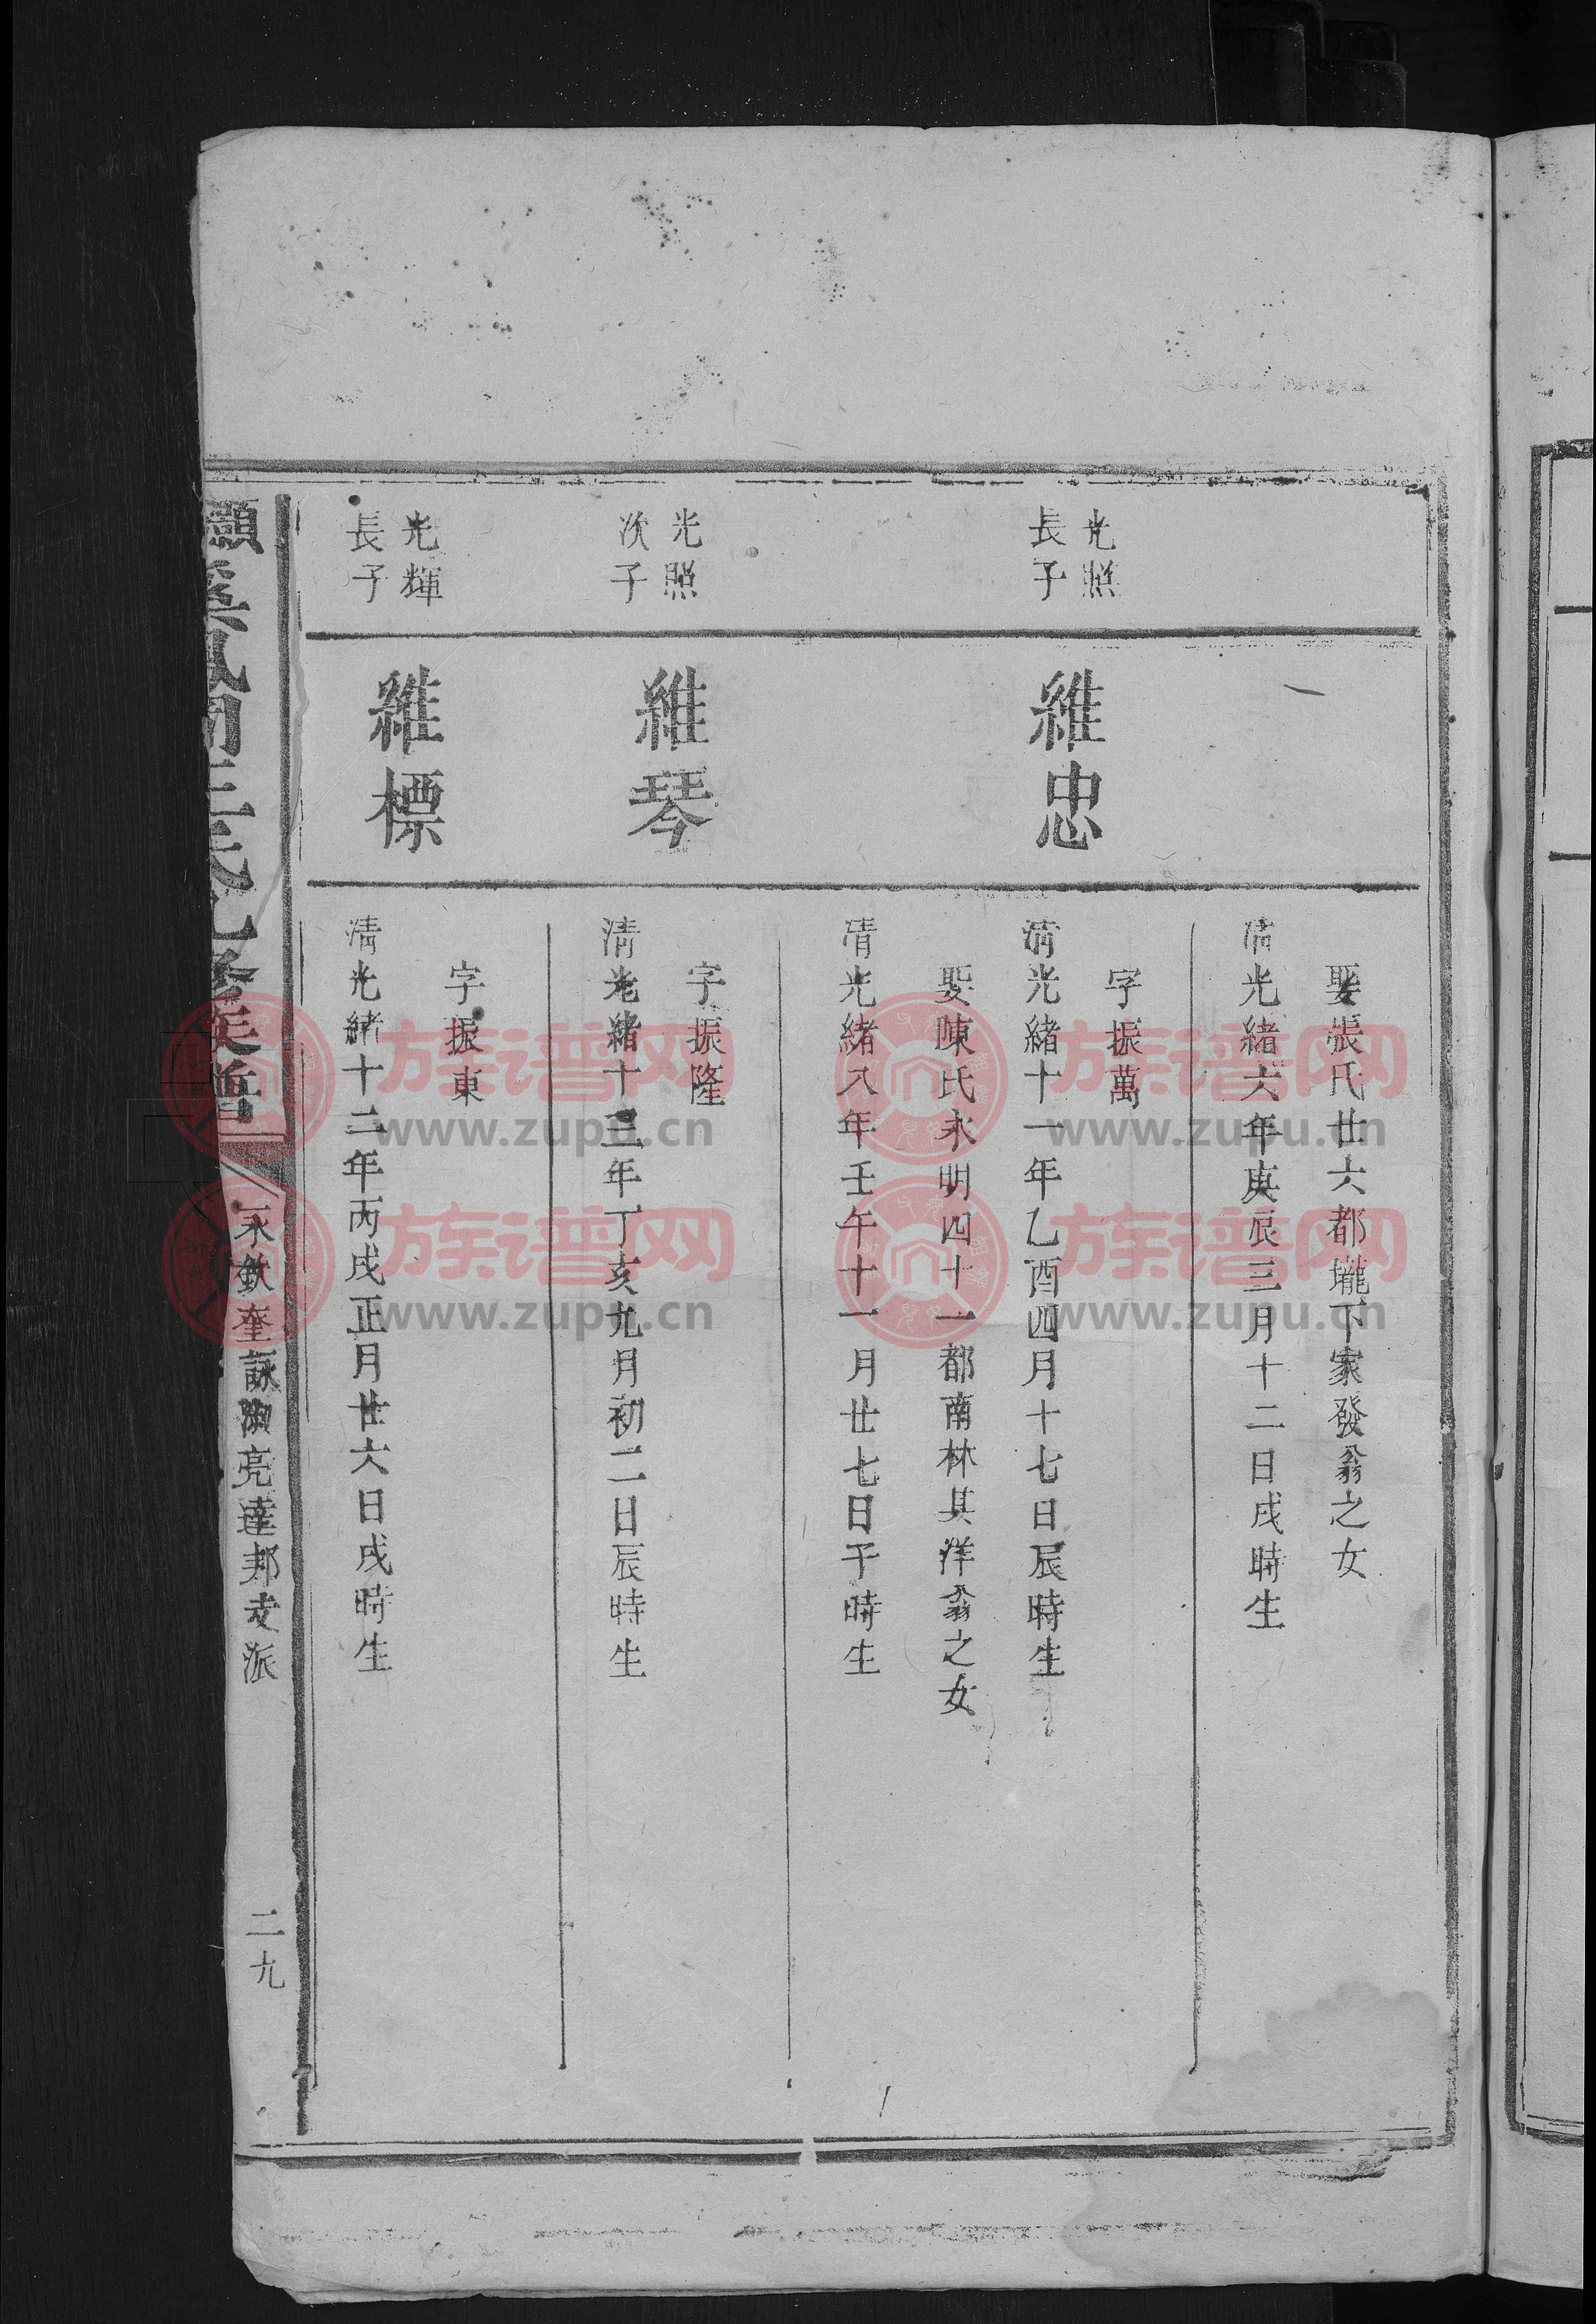 娶張氏廿六都壠下家發翁之女
清光緒六年庚辰三月十二日戌時生
光照
長子
維忠
字振萬
清光緒十一年乙酉四月十七日辰時生
娶陳氏永明四十一都南林其洋翁之女
清光緒八年壬午十一月廿七日子時生
光照
次子
維琴
字振隆
清光緒十三年丁亥九月初二日辰時生
光輝
長子
維標
字振東
清光緒十二年丙戌正月廿六日戌時生
氏
永欽奎詠
亮達邦支派
二九
族谱网
www.zupu.cn
族谱网
www.zupu.cn
族谱网
www.zupu.cn
族谱网
www.zupu.cn